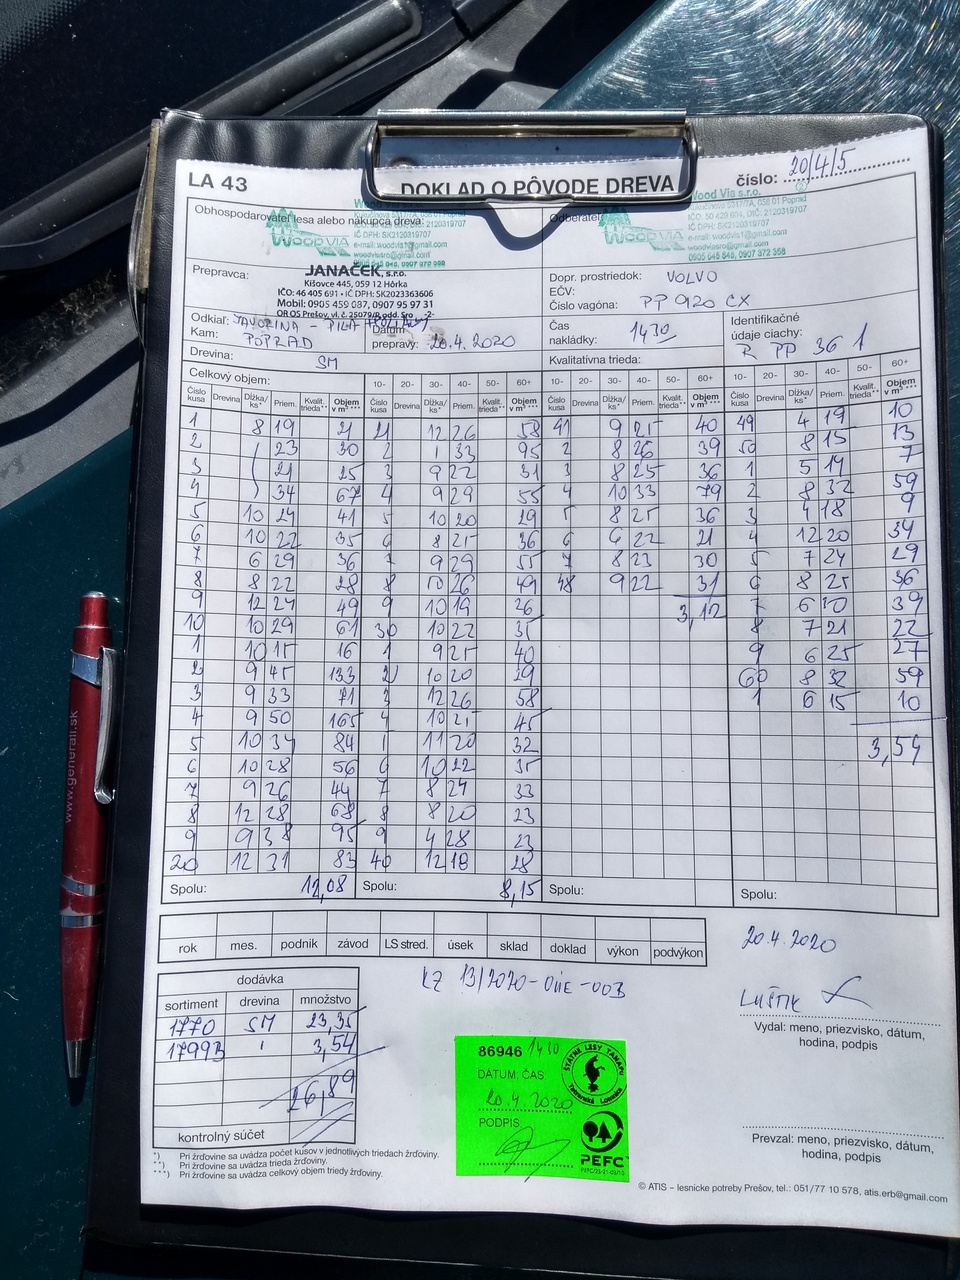 LA 43
DOKLAD O PÔVODE DREVA
číslo: 20/4/5
Obhospodarovateľ lesa alebo nákupca dreva:
WOODVIA
IČ DPH: SK2120319707
e-mail: woodvia1@gmail.com
woodviasro@gmail.com
0905 645 848, 0907 372 358
Odberateľ
Wood Via s.r.o.
WOODVIA
IČ DPH: SK2120319707
e-mail: woodvia1@gmail.com
woodviasro@gmail.com
0905 645 848, 0907 372 358
Prepravca:
JANAČEK, s.r.o.
Kišovce 445, 059 12 Hôrka
IČO: 46 405 691 • IČ DPH: SK2023363606
Mobil: 0905 459 087, 0907 95 97 31
OR OS Prešov, vl. č. 25079/P, odd. Sro -2-
Dopr. prostriedok: VOLVO
EČV:
Číslo vagóna: PP 920 CX
Odkiaľ: JAVORINA - PILA
Kam: POPRAD
Dátum
prepravy: 20.4.2020
Čas
nakládky: 1430
Identifikačné
údaje ciachy:
R PP 36 1
Drevina: SM
Kvalitatívna trieda:
Celkový objem:
10- 20- 30- 40- 50- 60+ 10- 20- 30- 40- 50- 60+ 10- 20- 30- 40- 50- 60+
Číslo kusa Drevina Dĺžka/ks* Priem. Kvalit. trieda** Objem v m³ ***
1 8 19 21 21 12 26 58 41 9 25 40 49 4 19 10
2 23 30 2 1 33 95 2 8 26 39 50 8 15 13
3 21 25 3 9 22 31 3 8 25 36 1 5 14 7
4 34 67 4 9 29 55 4 10 33 79 2 8 32 59
5 10 24 41 5 10 20 29 5 8 25 36 3 4 18 9
6 10 22 35 6 8 25 36 6 6 22 21 4 12 20 34
7 6 29 36 7 9 29 55 7 8 23 30 5 7 24 29
8 8 22 28 8 10 26 49 48 9 22 31 6 8 25 36
9 12 24 49 9 10 19 26 3,12 7 6 30 39
10 10 29 61 30 10 22 35 8 7 21 22
1 10 15 16 1 9 25 40 9 6 25 27
2 9 45 133 2 10 20 29 60 8 32 59
3 9 33 71 3 12 26 58 1 6 15 10
4 9 50 165 4 10 25 45
5 10 34 84 5 11 20 32 3,54
6 10 28 56 6 10 22 35
7 9 26 44 7 8 24 33
8 12 28 68 8 8 20 23
9 9 38 95 9 4 28 23
20 12 31 83 40 12 18 28
Spolu: 12,08 Spolu: 8,15 Spolu: Spolu:
rok mes. podnik závod LS stred. úsek sklad doklad výkon podvýkon
20.4.2020
dodávka
sortiment drevina množstvo
1770 SM 23,35
1799B " 3,54
26,89
kontrolný súčet
LZ 13/2020-OIIE-003
LUŠTIK
Vydal: meno, priezvisko, dátum,
hodina, podpis
86946 1430
DÁTUM, ČAS:
20.4.2020
PODPIS:
ŠTÁTNE LESY TANAPu
Tatranská Lomnica
PEFC
Prevzal: meno, priezvisko, dátum,
hodina, podpis
*) Pri žrďovine sa uvádza počet kusov v jednotlivých triedach žrďoviny.
**) Pri žrďovine sa uvádza trieda žrďoviny.
***) Pri žrďovine sa uvádza celkový objem triedy žrďoviny.
© ATIS – lesnícke potreby Prešov, tel.: 051/77 10 578, atis.erb@gmail.com
www.generali.sk